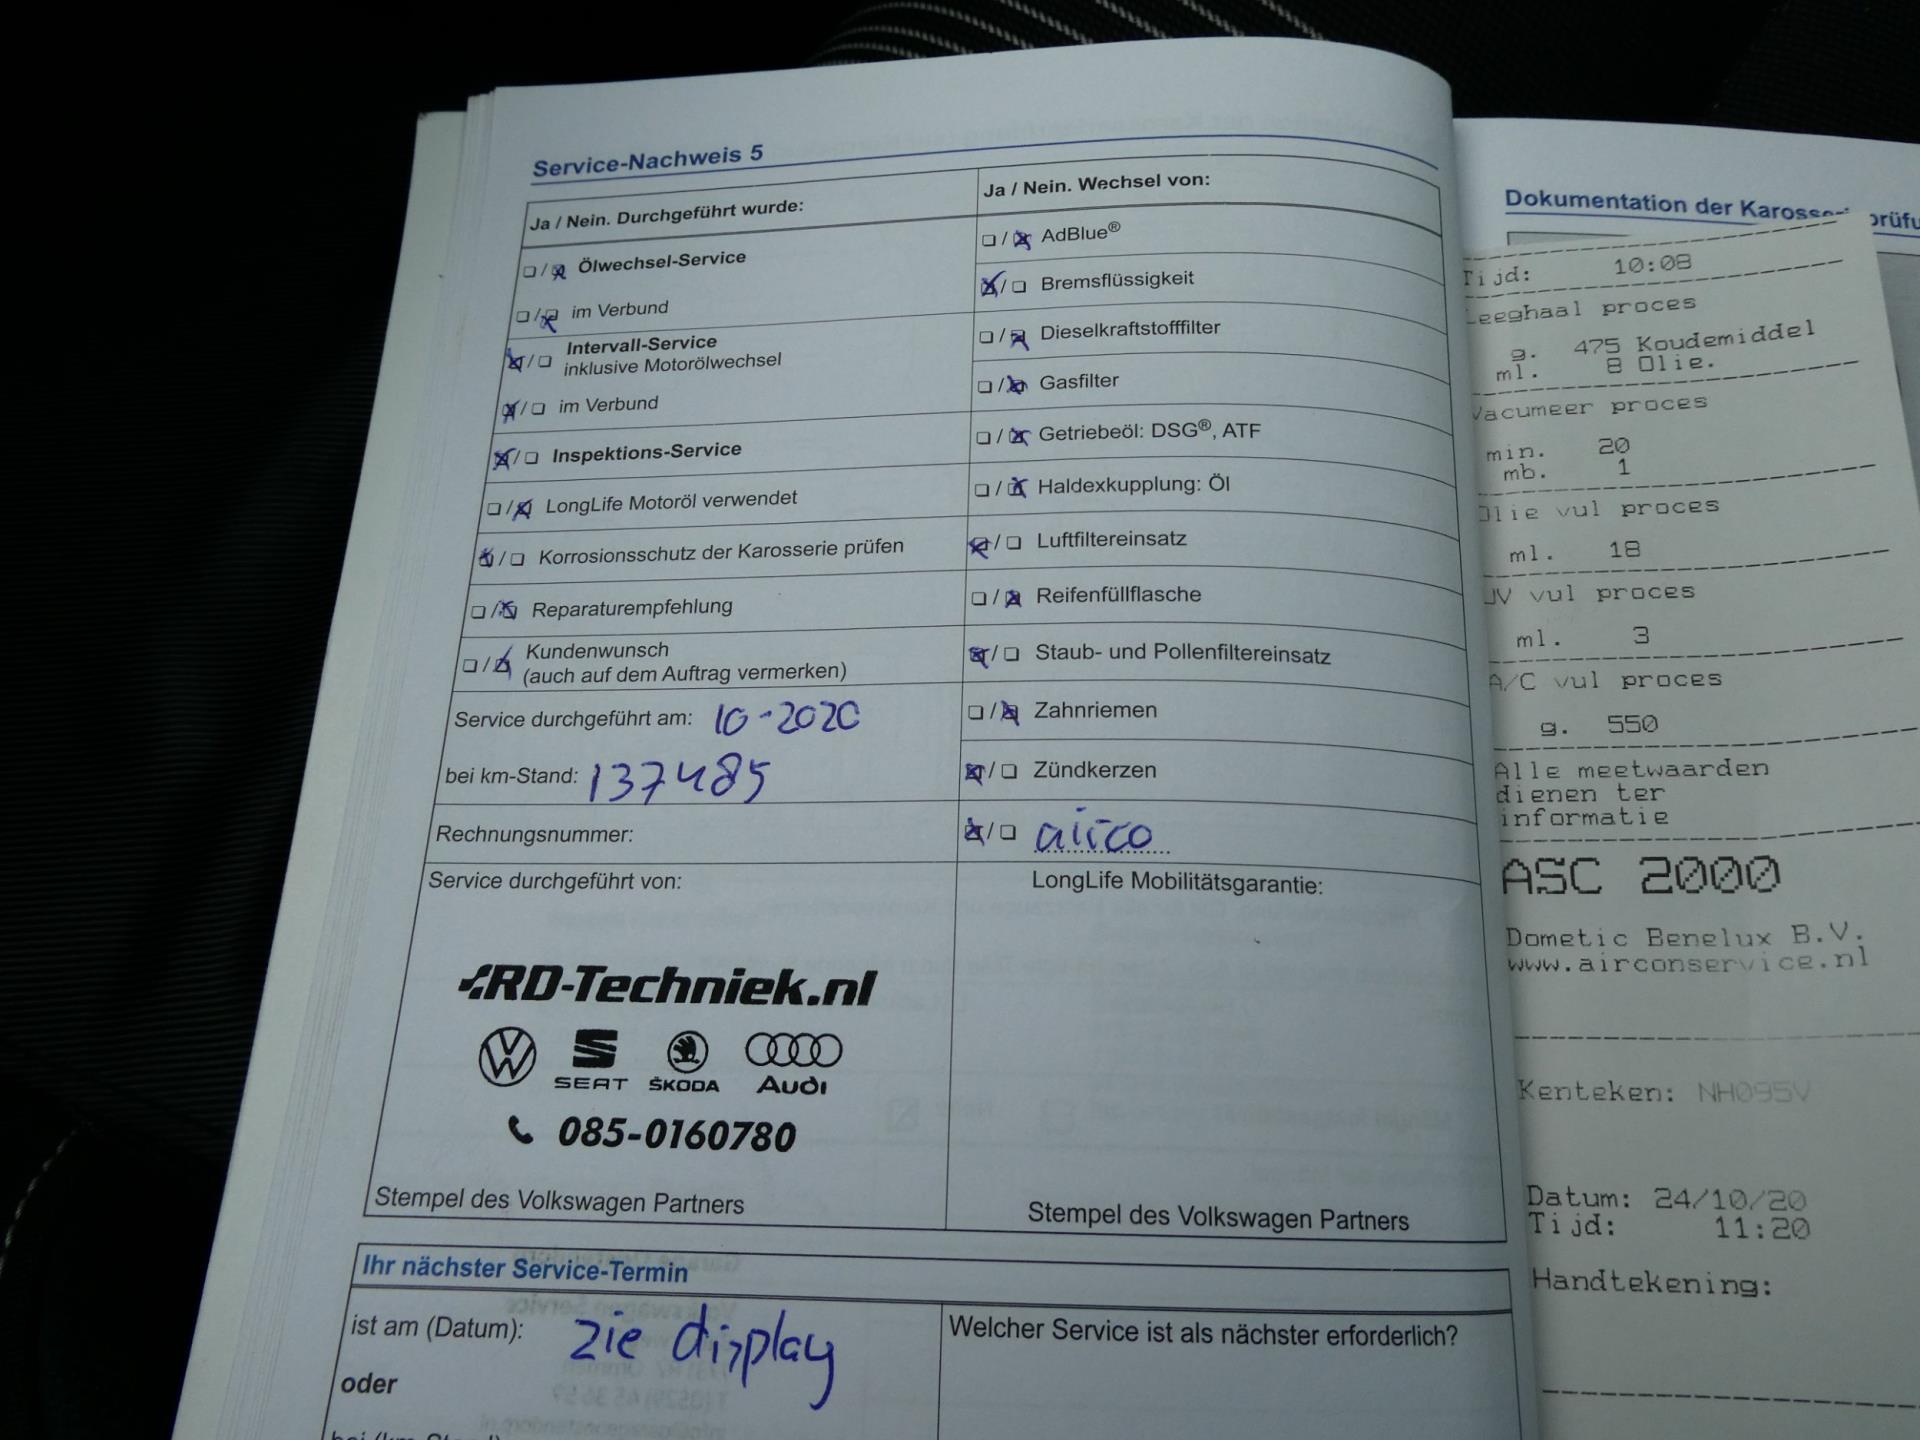 Service-Nachweis 5
Ja / Nein. Durchgeführt wurde:
Ölwechsel-Service
im Verbund
Intervall-Service
inklusive Motorölwechsel
im Verbund
Inspektions-Service
LongLife Motoröl verwendet
Korrosionsschutz der Karosserie prüfen
Reparaturempfehlung
Kundenwunsch
(auch auf dem Auftrag vermerken)
Service durchgeführt am: 10-2020
bei km-Stand: 137485
Rechnungsnummer:
Service durchgeführt von:
RD-Techniek.nl
SEAT ŠKODA Audi
085-0160780
Stempel des Volkswagen Partners
Ja / Nein. Wechsel von:
AdBlue®
Bremsflüssigkeit
Dieselkraftstofffilter
Gasfilter
Getriebeöl: DSG®, ATF
Haldexkupplung: Öl
Luftfiltereinsatz
Reifenfüllflasche
Staub- und Pollenfiltereinsatz
Zahnriemen
Zündkerzen
airco
LongLife Mobilitätsgarantie:
Stempel des Volkswagen Partners
Ihr nächster Service-Termin
ist am (Datum): zie display
oder
Welcher Service ist als nächster erforderlich?
Dokumentation der
Tijd: 10:08
Leeghaal proces
g. 475 Koudemiddel
ml. 8 Olie.
Vacumeer proces
min. 20
mb. 1
Olie vul proces
ml. 18
UV vul proces
ml. 3
A/C vul proces
g. 550
Alle meetwaarden
dienen ter
informatie
ASC 2000
Dometic Benelux B.V.
www.airconservice.nl
Kenteken: NH095V
Datum: 24/10/20
Tijd: 11:20
Handtekening: